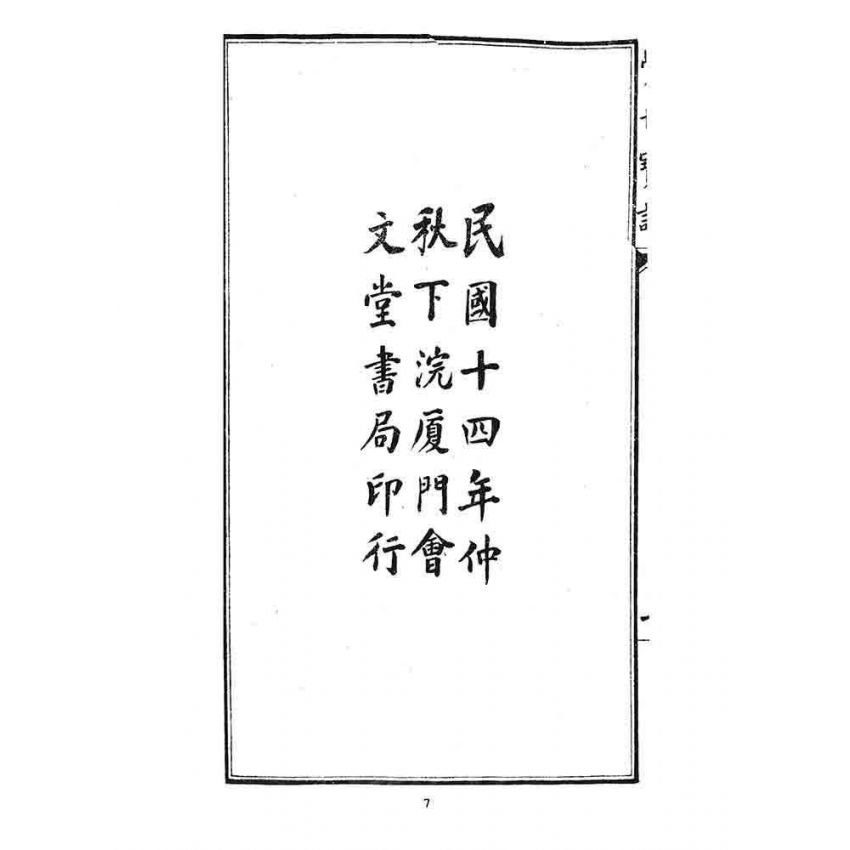 民國十四年仲
秋下浣厦門會
文堂書局印行
7